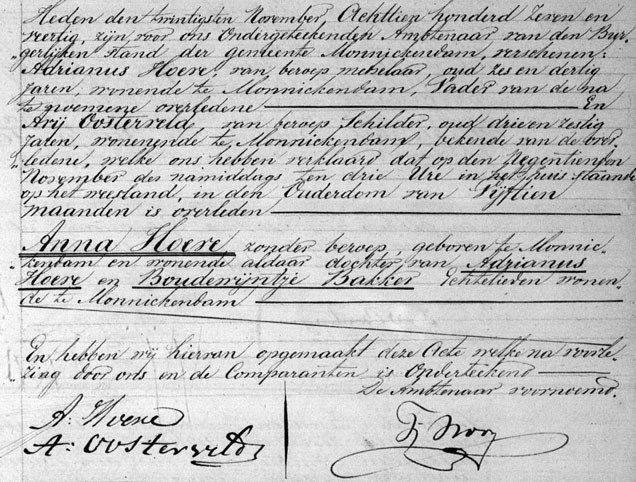 Heden den twintigsten November, Achttien honderd Zeven en
veertig, zijn voor ons Ondergeteekenden Ambtenaar van den Bur-
„gerlijken stand der gemeente Monnickendam, verschenen:
Adrianus Hoere, van beroep metselaar, oud zes en dertig
Jaren, wonende te Monnickendam, Vader van de na
te noemene overledene En
Arij Oosterveld van beroep Schilder, oud drie en zestig
Jaren, wonende te Monnickendam, bekende van de over
„ledene, welke ons hebben verklaard dat op den Negentienden
November des namiddags ten drie Ure in het huis staande
op het weesland, in den Ouderdom van Vijftien
maanden is overleden
Anna Hoere zonder beroep, geboren te Monnic-
kendam en wonende aldaar dochter van Adrianus
Hoere en Boudewijntje Bakker Echtelieden wonen
de te Monnickendam
En hebben wij hiervan opgemaakt deze Acte welke na voorle-
„zing door ons en de Comparanten is Onderteekend
De Ambtenaar voornoemd.
A. Hoere
A. Oosterveld